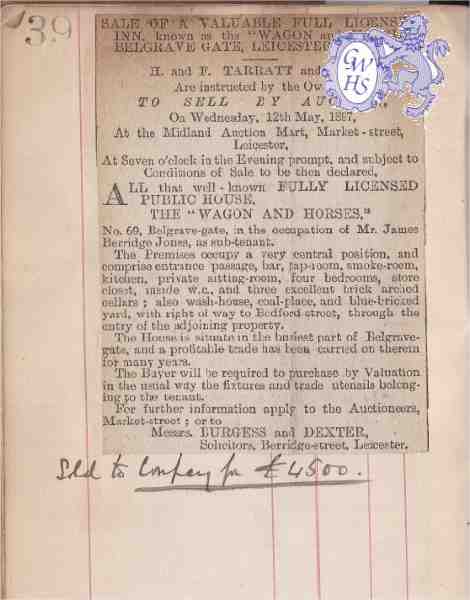 39
SALE OF A VALUABLE FULL LICENS
INN, known as the "WAGON an
BELGRAVE GATE, LEICESTER
H. and F. TARRATT and
Are instructed by the Ow
TO SELL BY AUC
On Wednesday, 12th May, 1897,
At the Midland Auction Mart, Market-street,
Leicester,
At Seven o'clock in the Evening prompt, and subject to
Conditions of Sale to be then declared,
ALL that well-known FULLY LICENSED
PUBLIC HOUSE,
THE "WAGON AND HORSES,"
No. 69, Belgrave-gate, in the occupation of Mr. James
Berridge Jones, as sub-tenant.
The Premises occupy a very central position, and
comprise entrance passage, bar, tap-room, smoke-room,
kitchen, private sitting-room, four bedrooms, store
closet, inside w.c., and three excellent brick arched
cellars; also wash-house, coal-place, and blue-bricked
yard, with right of way to Bedford-street, through the
entry of the adjoining property.
The House is situate in the busiest part of Belgrave-
gate, and a profitable trade has been carried on therein
for many years.
The Buyer will be required to purchase by Valuation
in the usual way the fixtures and trade utensils belong-
ing to the tenant.
For further information apply to the Auctioneers,
Market-street; or to
Messrs. BURGESS and DEXTER,
Solicitors, Berridge-street, Leicester.
Sold to Company for £4500.
GWHS